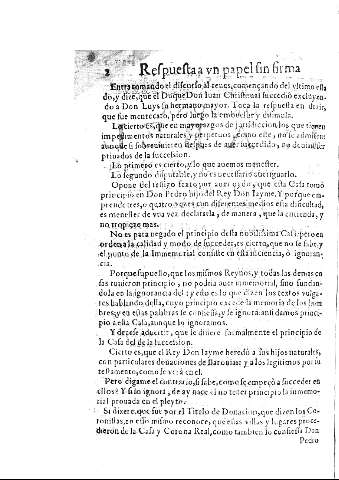 2 Respuesta a vn papel sin firma
Entra tomando el discurso al reues, començando del vltimo esta
do, y dize, que el Duque Don Iuan Christoual succedió excluyen-
do a Don Luys su hermano mayor. Toca la respuesta en dezir,
que fue mentecato, pero luego la embuelbe y disimula.
Lo cierto es, que en mayorazgos de jurisdicion, los que tienen
impedimentos naturales y perpetuos, como este, no se admiten
aunque si sobreuinieren despues de auer succedido, no deuen ser
priuados de la succession.
Lo primero es cierto, y lo que auemos menester.
Lo segundo disputable, y no es necessario aueriguarlo.
Opone del resiro por que esta Casa tomó
principio en Don Pedro hijo del Rey Don Iayme, Y porque em-
prende tres, o quatro vezes con diferentes medios esta dificultad,
es menester de vna vez declararla, de manera, que la entienda, y
no tropieze mas.
No es para negado el principio desta nobilissima Casa, pero en
orden a la calidad y modo de succeder, es cierto, que no se sabe, y
el punto de la Immemorial consiste en esta inciencia, ò ignoran-
cia.
Porque supuesto, que los mismos Reynos, y todas las demas co
sas tuuieron principio, no podria auer immemorial, sino fundan-
dola en la ignorancia del: y esto es lo que dizen los textos vulga-
res hablando della, cuyo principio excede la memoria de los hom
bres, y en estas palabras se confiessa, y se ignora: assi damos princi-
pio a esta Casa, aunque lo ignoramos.
Y deuese aduertir, que le dizen formalmente el principio de
la Casa del de la succession.
Cierto es, que el Rey Don Iayme heredó a sus hijos naturales,
con particulares donaciones de sus y a los legitimos por su
testamento, como se verá en el.
Pero digame el contrario, si sabe, como se empeçó a succeder en
ellos? Y si lo ignora, de ay nace el no tener principio la immemo-
rial prouada en el pleyto.
Si dixere, que fue por el Titulo de Donacion, que dizen los Co-
ronistas, en esso mismo reconoce, que estas villas y lugares proce-
dieron de la Casa y Corona Real, como tambien lo confiessa Don
Pedro